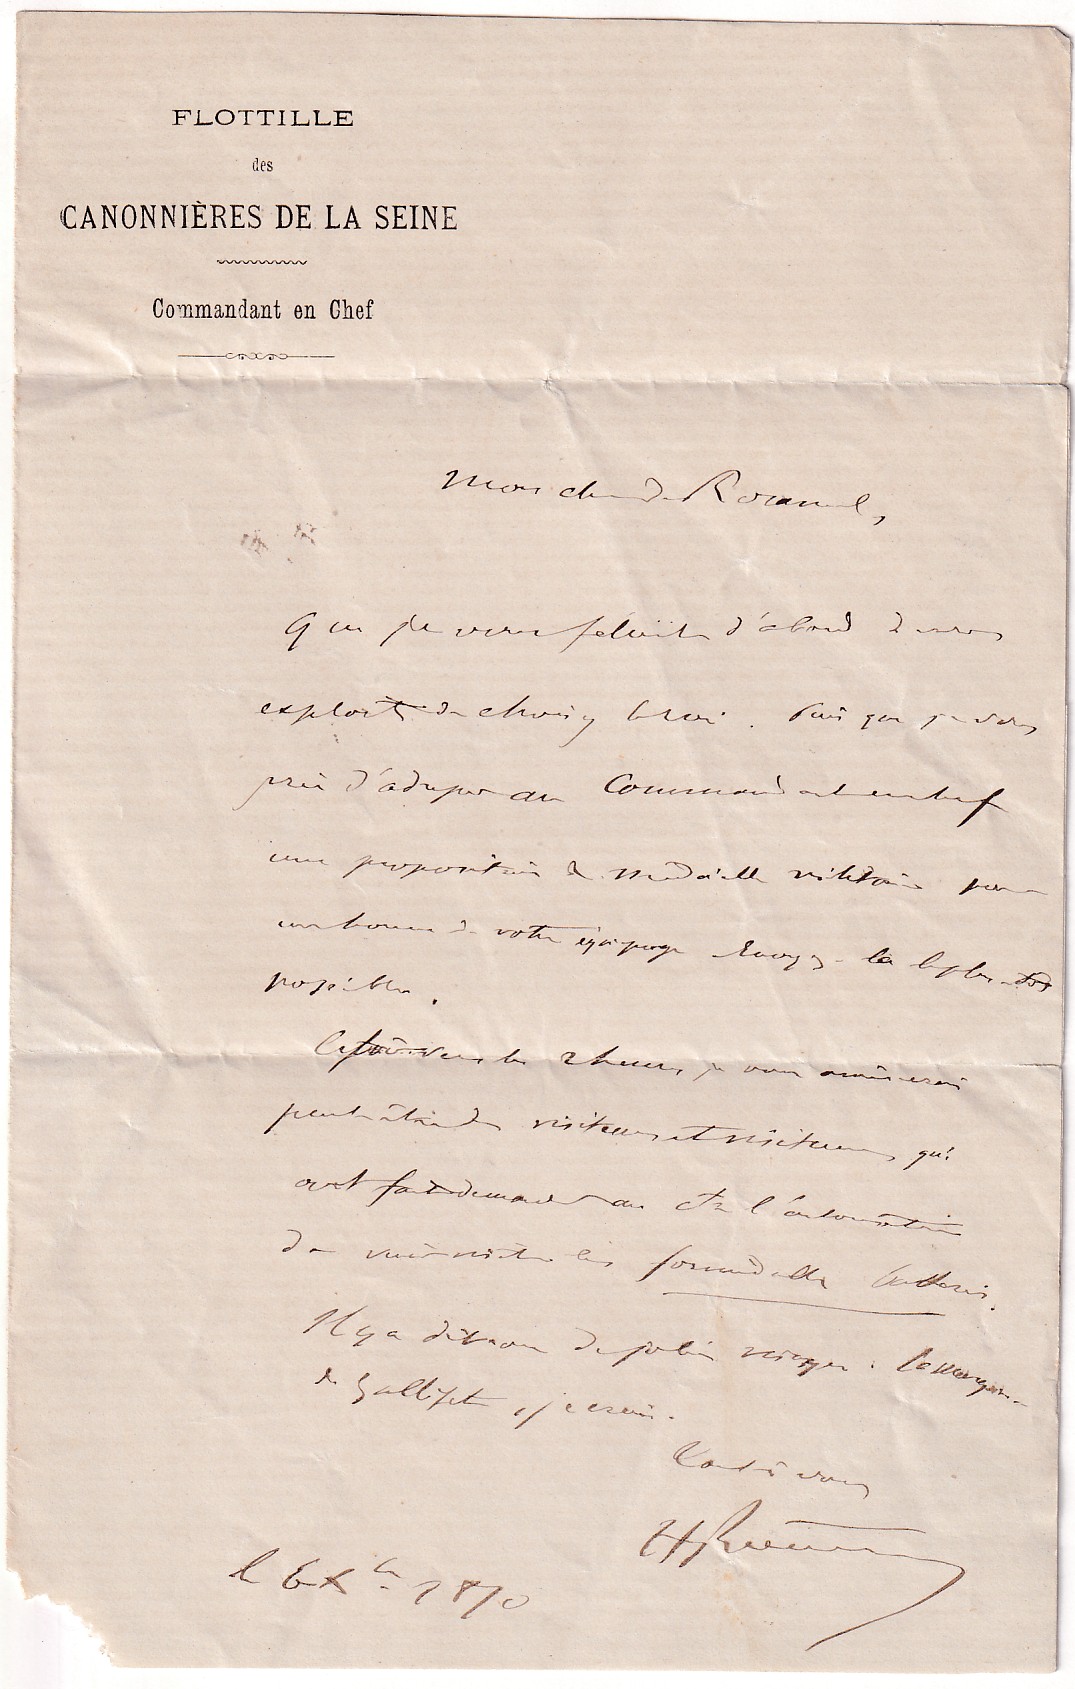 FLOTTILLE
des
CANONNIÈRES DE LA SEINE
Commandant en Chef
Mon cher de Rosamel,
Que je vous félicite d'abord de vos
exploits de choisy le roi. Puis que je vous
prie d'adresser au Commandant en chef
une proposition de médaille militaire pour
un homme de votre équipage Envoyez-la le plus tôt
possible.
vers les 2 heures, je vous amènerai
peut-être des visiteurs et visiteuses qui
ont fait demander au l'autorisation
de venir visiter les formidable batteries.
Il y a dit-on de jolis visages. la marquise
de Galliffet, je crois.
Tout à vous
H R
le 6 Xbre 1870